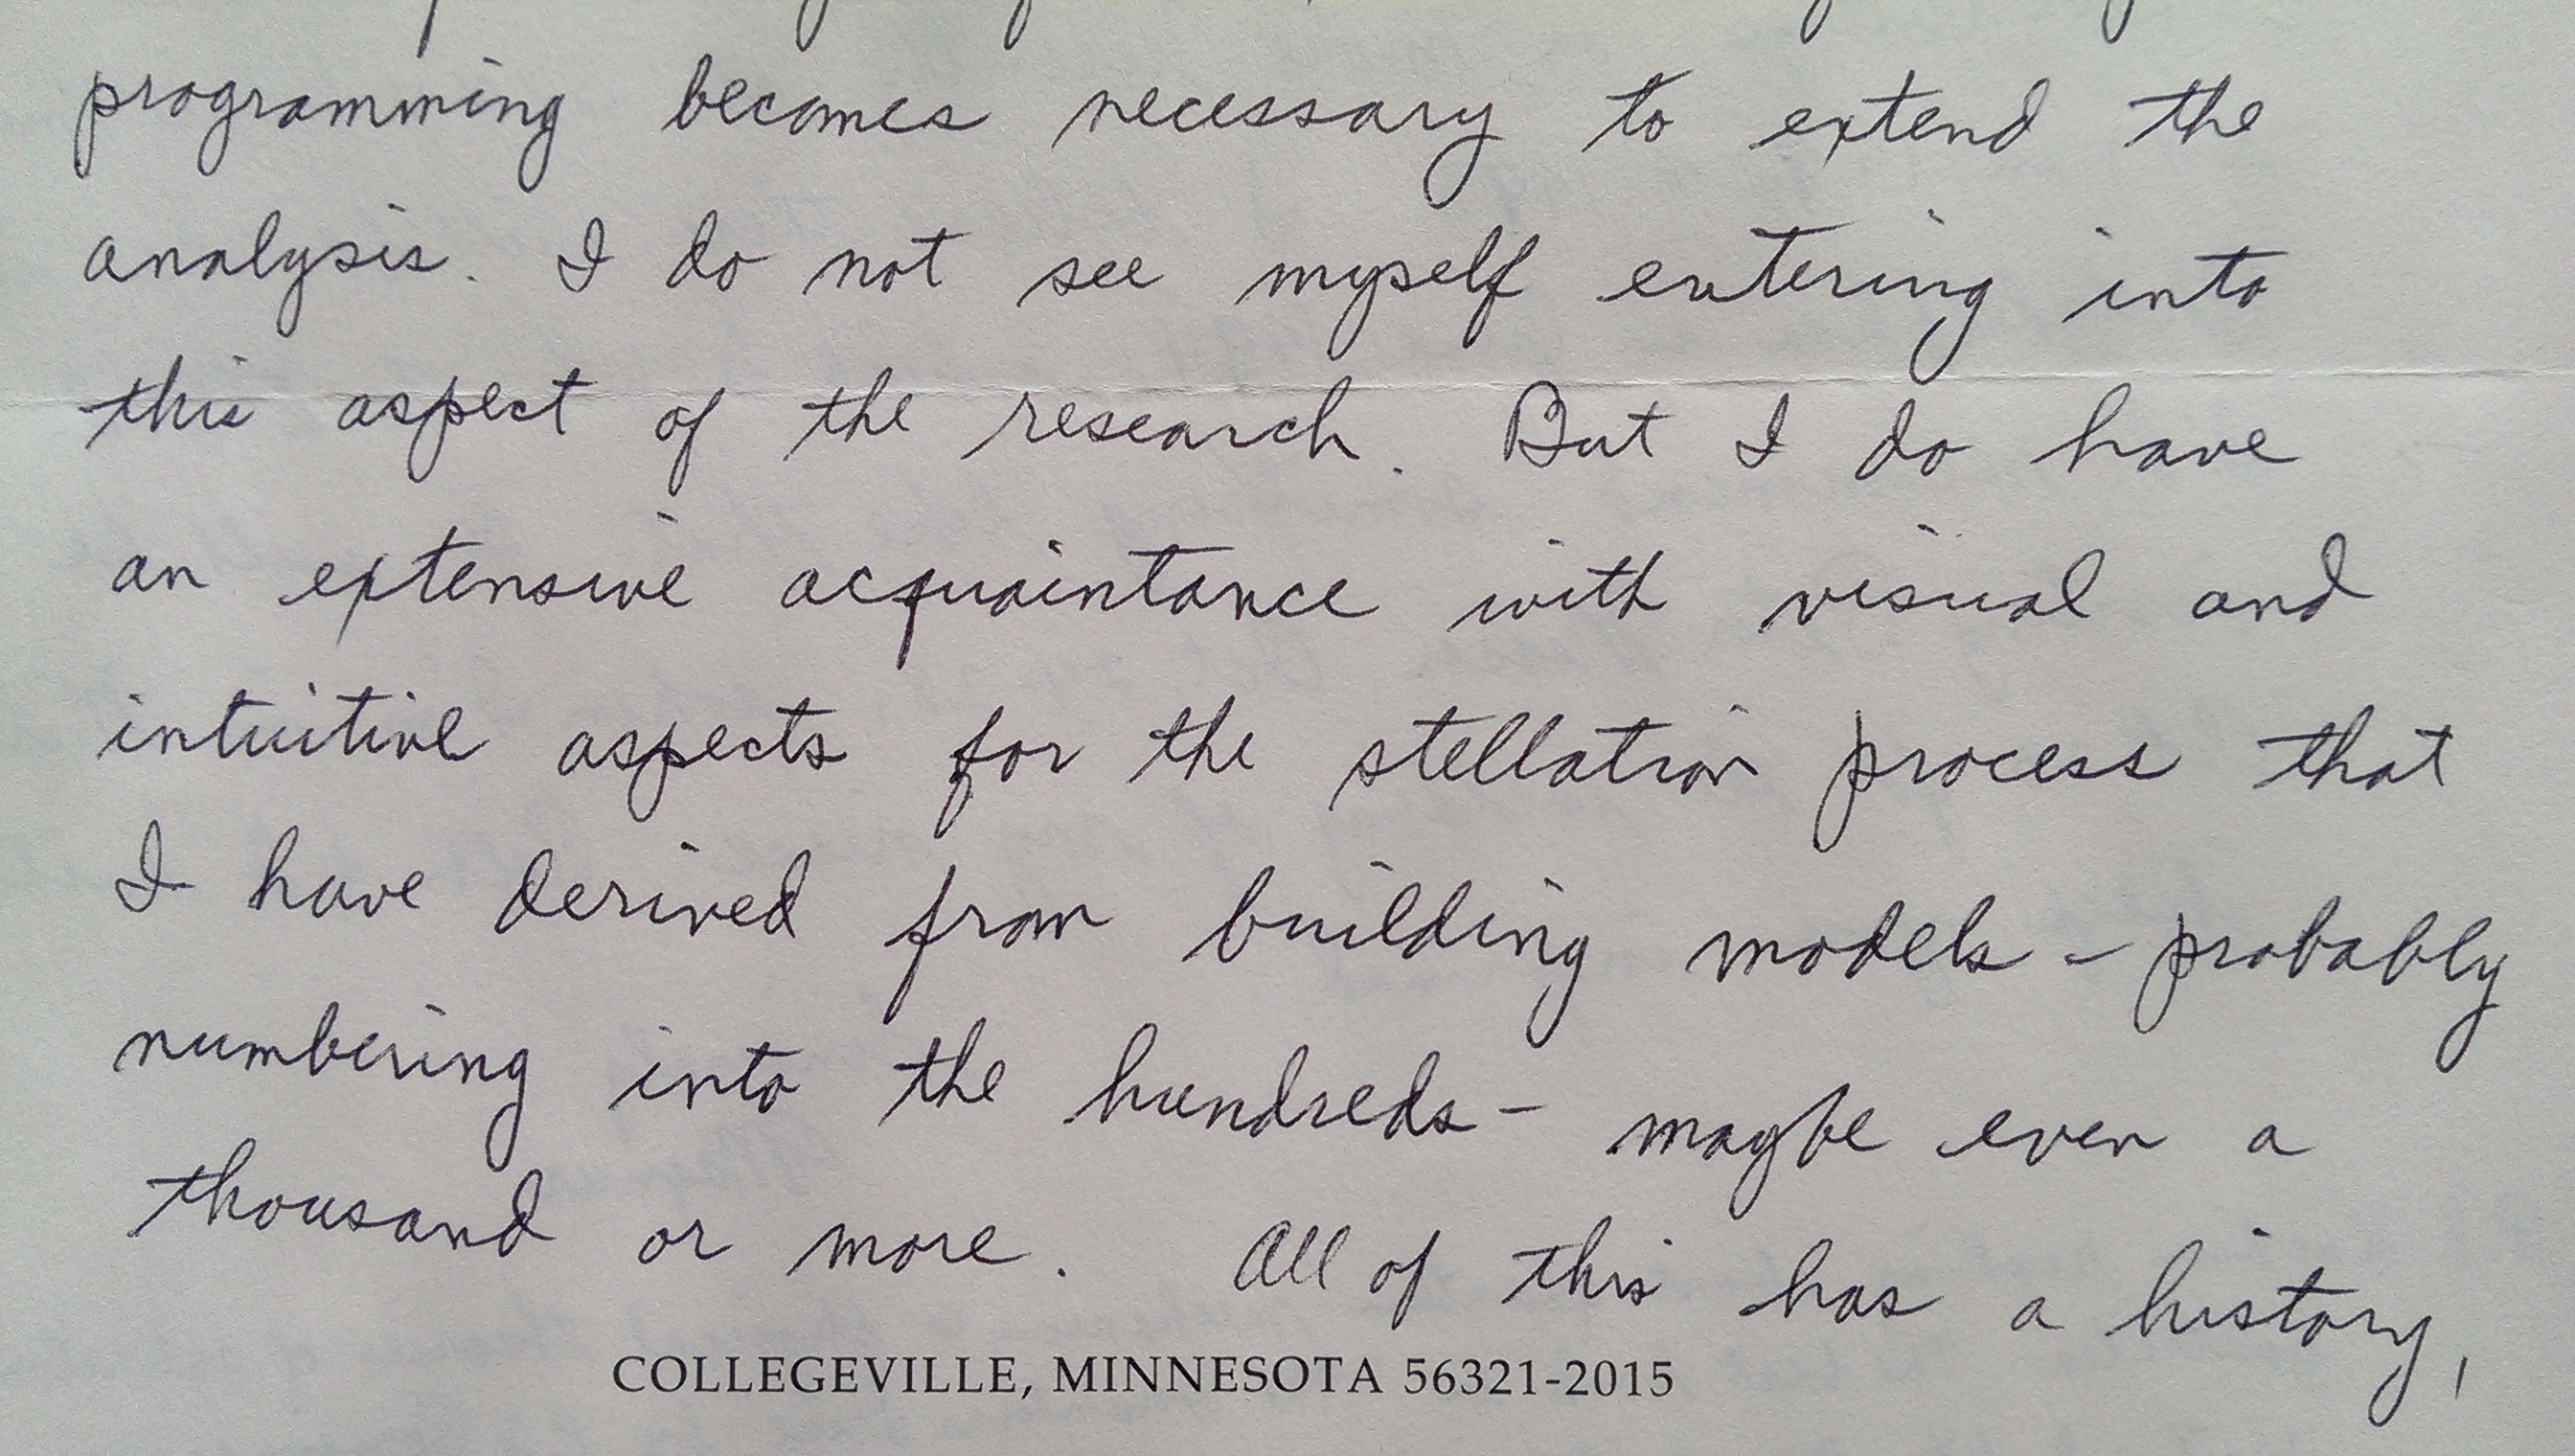 programming becomes necessary to extend the
analysis. I do not see myself entering into
this aspect of the research. But I do have
an extensive acquaintance with visual and
intuitive aspects for the stellation process that
I have derived from building models - probably
numbering into the hundreds - maybe even a
thousand or more. All of this has a history,
COLLEGEVILLE, MINNESOTA 56321-2015